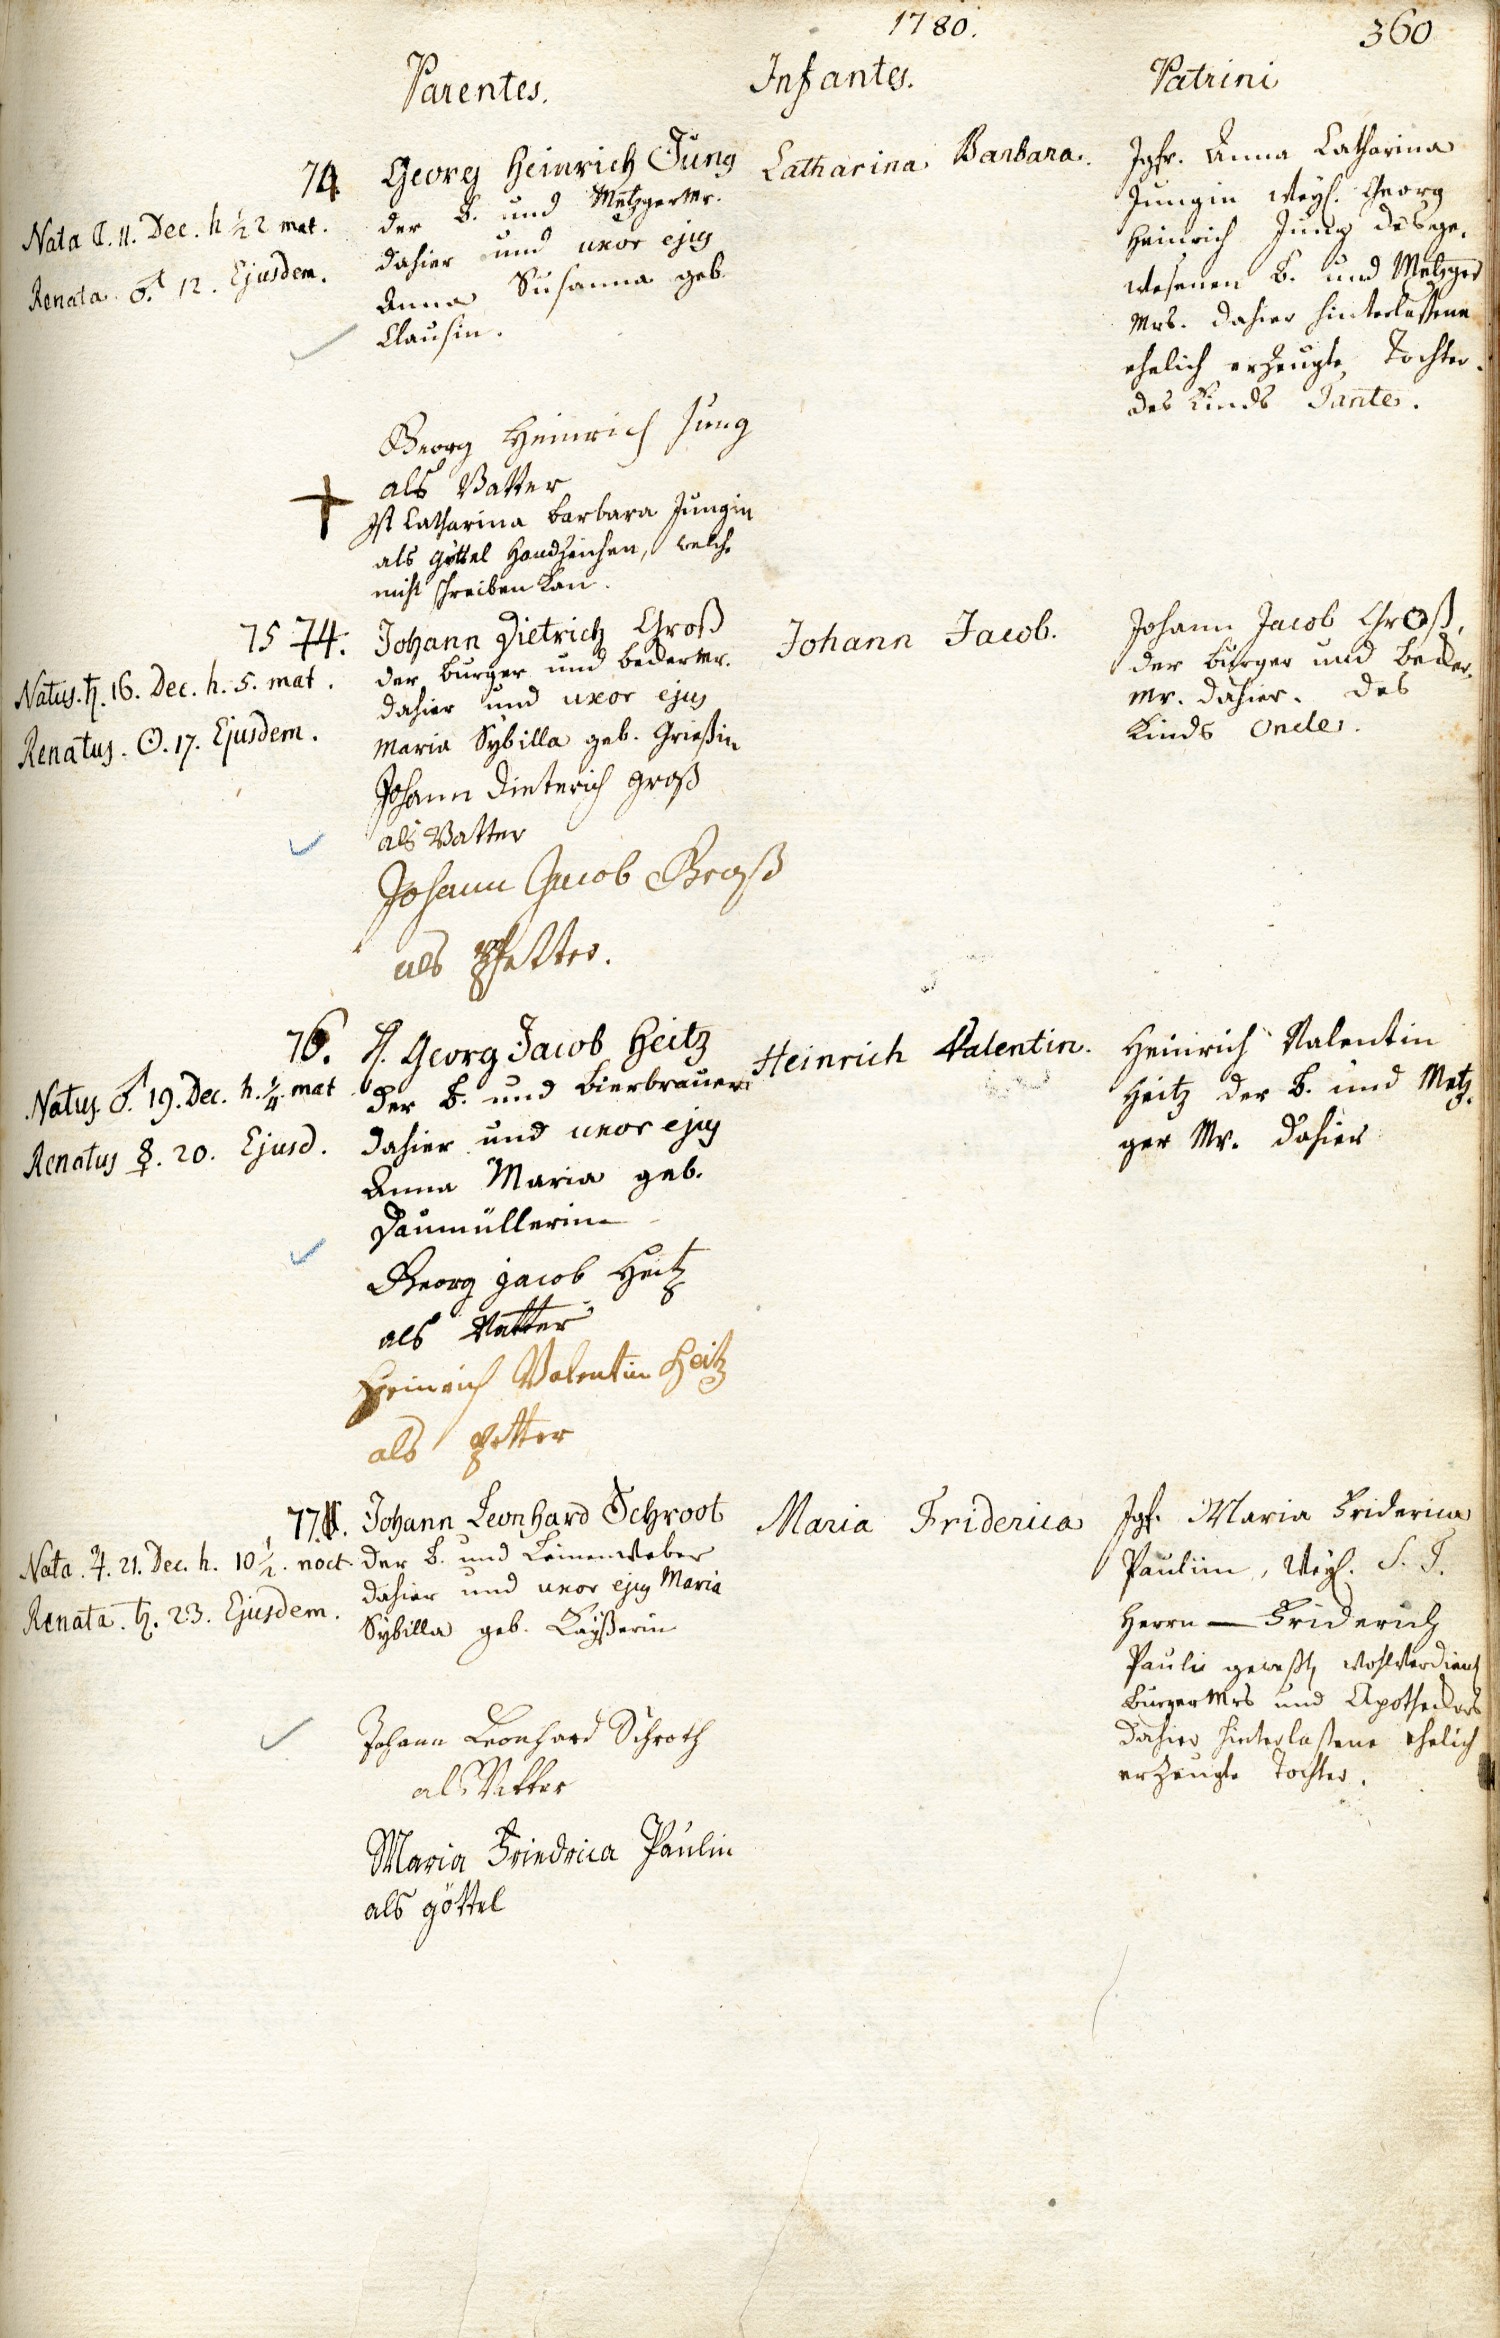 1780.
360
Parentes.
Infantes.
Patrini
74
Nata ☾. 11. Dec. h ½ 2 mat.
Renata ♂. 12. Ejusdem.
Georg Heinrich Jung
der B. und Metzger Mr.
dahier und uxor ejus
Anna Susanna geb.
Clausin.
Catharina Barbara.
Jgfr. Anna Catharina
Jungin weyl. Georg
Heinrich Jung des ge-
wesenen B. und Metzger
Mrs. dahier hinterlassene
ehelich erzeugte Tochter.
des Kinds Tante.
Georg Heinrich Jung
als Vatter
+
Ist Catharina Barbara Jungin
als göttel Handzeichen, welche
nicht schreiben kan.
75 74.
Natus. ♄. 16. Dec. h. 5. mat.
Renatus. ☉. 17. Ejusdem.
Johann Dietrich Groß
der burger und becker Mr.
dahier und uxor ejus
Maria Sybilla geb. Grießin
Johann Jacob.
Johann Jacob Groß,
der burger und Becker-
Mr. dahier. des
Kinds Oncle.
Johann Dieterich groß
als Vatter
Johann Jacob Groß
als Pfetter.
76.
Natus ♂. 19. Dec. h. ¼. mat
Renatus ☿. 20. Ejusd.
H. Georg Jacob Heitz
der B. und Bierbrauer
dahier und uxor ejus
Anna Maria geb.
Daumüllerin
Heinrich Valentin.
Heinrich Valentin
Heitz der B. und Metz-
ger Mr. dahier
Georg jacob Heitz
als Vatter
Heinrich Valentin Heitz
als Petter
77.
Nata. ♃. 21. Dec. h. 10 ½. noct.
Renata. ♄. 23. Ejusdem.
Johann Leonhard Schroot
der B. und Leinenweber
dahier und uxor ejus Maria
Sybilla geb. Kayßerin
Maria Friderica
Jgf. Maria Friderica
Paulin, weyl. S. T.
Herrn — Friderich
Pauli geweßt, wohlverdient
burger Mrs und Apotheckers
dahier hinterlaßene ehelich
erzeugte Tochter.
Johann Leonhard Schroth
als Vatter
Maria Friedrica Paulin
als göttel